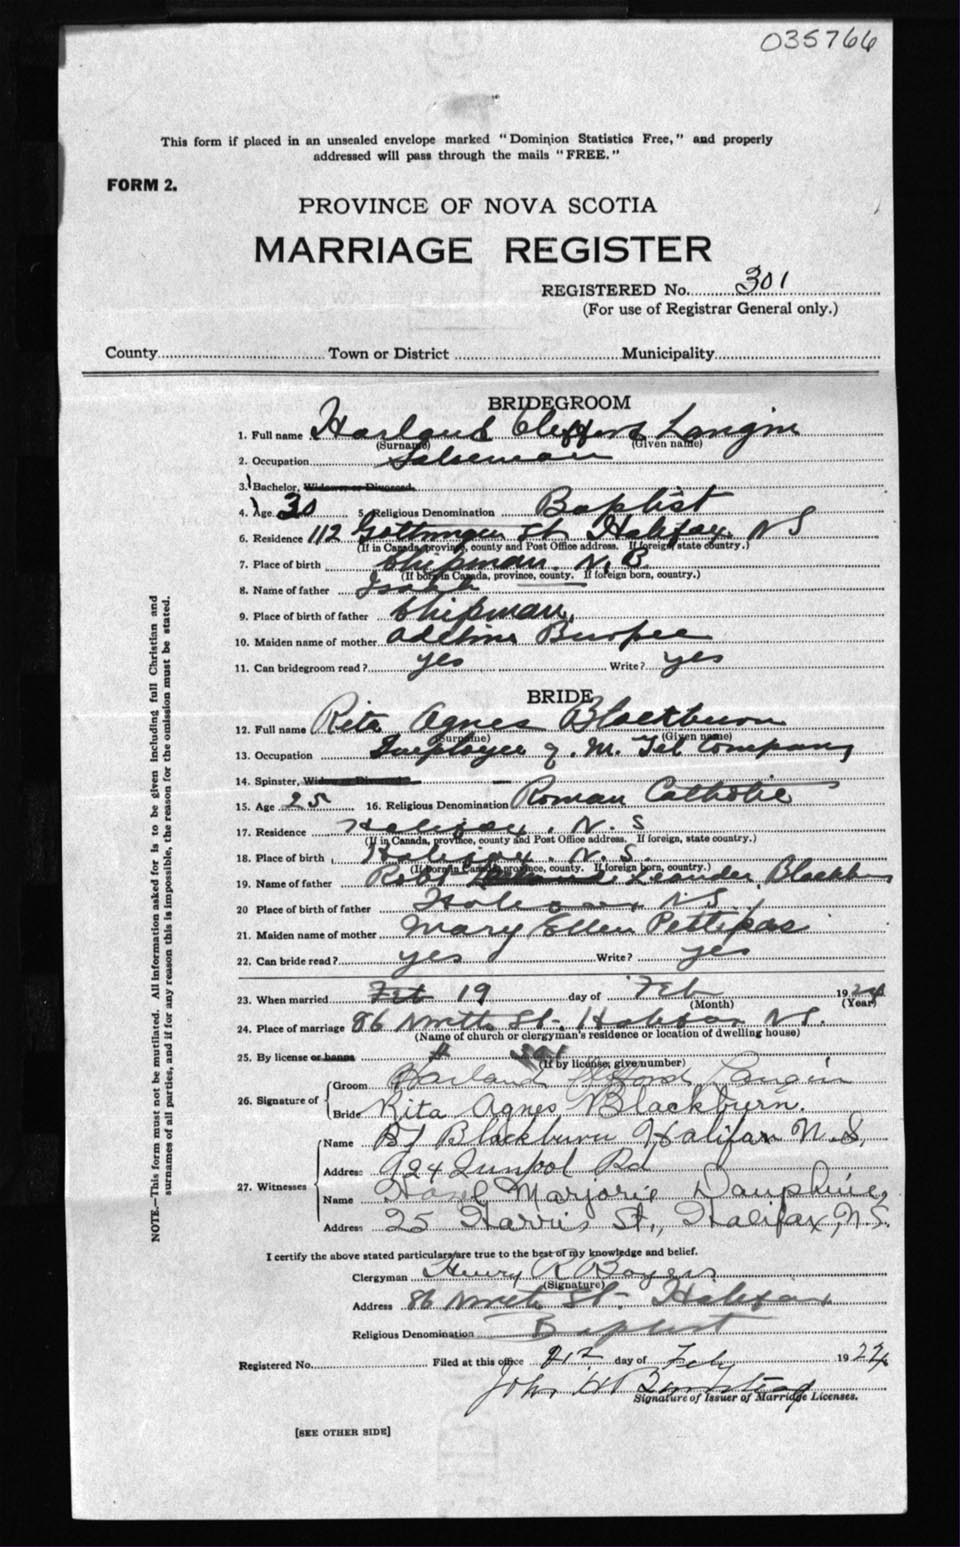 035766
This form if placed in an unsealed envelope marked "Dominion Statistics Free," and properly
addressed will pass through the mails "FREE."
FORM 2.
PROVINCE OF NOVA SCOTIA
MARRIAGE REGISTER
REGISTERED No. 301
(For use of Registrar General only.)
County Town or District Municipality
BRIDEGROOM
1. Full name Harland Clifford Langin
(Surname) (Given name)
2. Occupation Salesman
3. Bachelor, Widower or Divorced.
4. Age 30 5. Religious Denomination Baptist
6. Residence 112 Gottingen St. Halifax N S
(If in Canada, province, county and Post Office address. If foreign, state country.)
7. Place of birth Chipman. N. B.
(If born in Canada, province, county. If foreign born, country.)
8. Name of father
9. Place of birth of father Chipman,
10. Maiden name of mother Adeline Burpee
11. Can bridegroom read? yes Write? yes
BRIDE
12. Full name Rita Agnes Blackburn
(Surname) (Given name)
13. Occupation Employee of M. Tel Company
14. Spinster, Widow or Divorced
15. Age 25 16. Religious Denomination Roman Catholic
17. Residence Halifax, N. S
(If in Canada, province, county and Post Office address. If foreign, state country.)
18. Place of birth Halifax. N. S.
(If born in Canada, province, county. If foreign born, country.)
19. Name of father Robt Leander Blackburn
20 Place of birth of father Halifax, N S.
21. Maiden name of mother Mary Ellen Pettipas
22. Can bride read? yes Write? yes
23. When married Feb 19 day of Feb 1924
(Month) (Year)
24. Place of marriage 86 North St. Halifax N S.
(Name of church or clergyman's residence or location of dwelling house)
25. By license or banns #
(If by license, give number)
26. Signature of
Groom Harland Clifford Langin
Bride Rita Agnes Blackburn.
27. Witnesses
Name B J Blackburn Halifax N. S.
Address 924 Rd
Name Hazel Marjorie Dauphinee,
Address 25 Harris St., Halifax, N.S.
I certify the above stated particulars are true to the best of my knowledge and belief.
Clergyman Henry R Boyer
(Signature)
Address 86 North St. Halifax
Religious Denomination Baptist
Registered No. Filed at this office 212 day of Feby 1924
John H
Signature of Issuer of Marriage Licenses.
[SEE OTHER SIDE]
NOTE.—This form must not be mutilated. All information asked for is to be given including full Christian and
surnames of all parties, and if for any reason this is impossible, the reason for the omission must be stated.